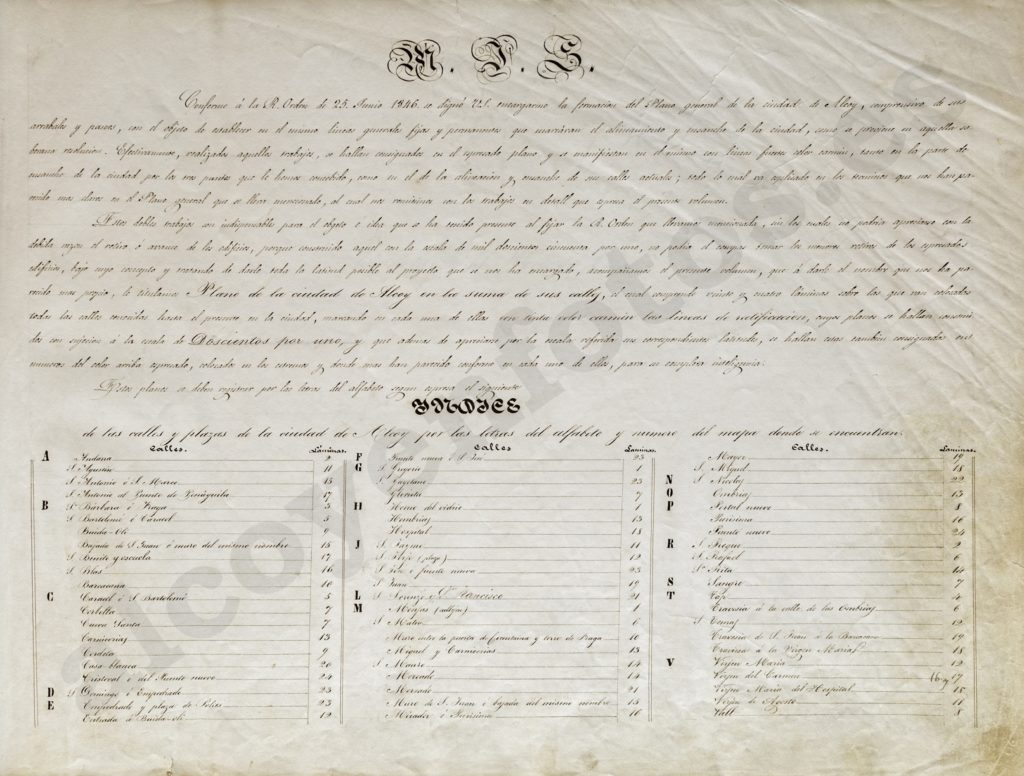 M. I. S.
Conforme á la R. Orden de 25. Junio 1846. se dignó V.S. encargarme la formacion del Plano general de la ciudad de Alcoy, comprensivo de sus
arrabales y paseos, con el objeto de establecer en el mismo lineas generales fijas y permanentes que marcáran el alineamiento y ensanche de la ciudad, como se previene en aquella so-
berana resolucion. Efectivamente, realizados aquellos trabajos, se hallan consignados en el espresado plano y se manifiestan en el mismo con lineas fuertes color carmin, tanto en la parte de
ensanche de la ciudad por los tres puntos que le hemos concebido, como en el de la alineacion y ensanche de sus calles actuales; todo lo cual va esplicado en los terminos que nos han pa-
recido mas claros en el Plano general que se lleva mencionado, al cual nos remitimos con los trabajos en detall que espresa el presente volumen.
Estos dobles trabajos son indispensables para el objeto é idea que se ha tenido presente al fijar la R. Orden que llevamos mencionada, sin los cuales no podria apreciarse con la
debida razon el retiro ó avance de los edificios, porque construido aquel con la escala de mil doscientos cincuenta por uno, no podia el compas tomar los menores retiros de los espresados
edificios, bajo cuyo concepto y tratando de darle toda la latitud posible al proyecto que se nos ha encargado, acompañamos el presente volumen, que á darle el nombre que nos ha pa-
recido mas propio, le titulamos Plano de la ciudad de Alcoy en la suma de sus calles, el cual comprende veinte y cuatro láminas sobre las que van colocadas
todas las calles conocidas hasta el presente en la ciudad, marcando en cada una de ellas con tinta color carmin las lineas de rectificacion, cuyos planos se hallan construi-
dos con sujecion á la escala de Doscientos por uno, y que ademas de apreciarse por la escala referida sus correspondientes latitudes, se hallan estas tambien consignadas en
numeros del color arriba espresado, colocados en los estremos y donde mas han parecido conforme en cada uno de ellos, para su completa inteligencia.
Estos planos se deben registrar por las letras del alfabeto segun espresa el siguiente
YNDICE
de las calles y plazas de la ciudad de Alcoy por las letras del alfabeto y numero del mapa donde se encuentran.
Calles. Láminas.
A Andana 2
S. Agustin 11
S. Antonio ó S. Marco 15
S. Antonio al Puente de Penáguila 17
B Sta. Bárbara ó Fraga 3
S. Bartolomé ó Caracol 5
Buida-Oli 9
Bajada de S. Juan ó muro del mismo nombre 15
S. Benito y escuela 17
S. Blas 16
Barcacana 10
C Caracol ó S. Bartolomé 5
Corbella 7
Cueva Santa 7
Carnicerias 13
Cordeta 9
Casa blanca 20
Cristoval ó del Puente nuevo 24
D Sto. Domingo ó Empedrado 23
E Empedrado y plaza de Polios 23
Entrada á Buida-oli 12
Calles. Láminas.
F Fuente nueva ó S. José 23
G S. Gregorio 1
S. Cayetano 23
Glorieta 7
H Horno del vidrio 1
Hombrias 13
Hospital 18
J S. Jayme 11
S. Jorge (plaza) 12
S. José ó fuente nueva 23
S. Juan 19
L S. Lorenzo ó S. Francisco 21
M Monjas (callejon) 1
S. Mateo 6
Muro entre la puerta de Cocentaina y torre de Fraga 10
Miguel y Carnicerias 13
S. Mauro 14
Mercado 14
Mercado 21
Muro de S. Juan ó bajada del mismo nombre 15
Mirador ó Purisima 16
Calles. Láminas.
Mayor 19
S. Miguel 18
N S. Nicolas 22
O Ombrias 13
P Portal nuevo 8
Purisima 16
Puente nuevo 24
R S. Roque 2
S. Rafael 6
Sta. Rita 14
S Sangre 7
T Tap 4
Travesia á la calle de las Ombrias 6
S. Tomas 12
Travesia de S. Juan á la Barcacana 19
Travesia de la Virgen Maria 18
V Virgen Maria 12
Virgen del Carmen 16 y 17
Virgen Maria del Hospital 18
Virgen de Agosto 11
Vall 8